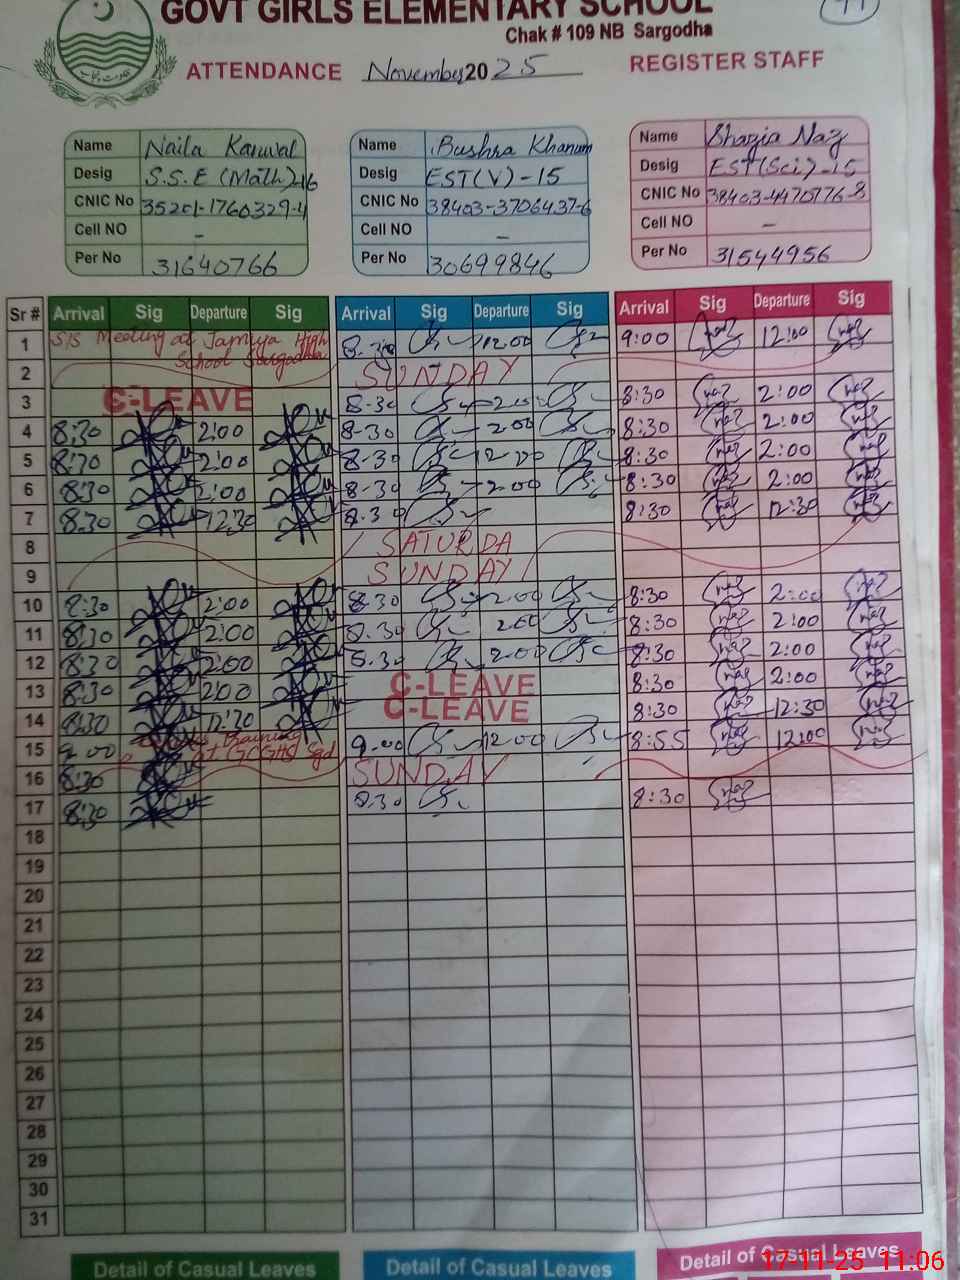 GOVT GIRLS ELEMENTARY SCHOOL
Chak # 109 NB Sargodha
ATTENDANCE November 2025 REGISTER STAFF
Name Naila Kanwal
Desig S.S.E (Math)-16
CNIC No 35201-1760329-4
Cell NO -
Per No 31640766
Name Bushra Khanum
Desig EST(V)-15
CNIC No 38403-3706437-6
Cell NO -
Per No 30699846
Name Shazia Naz
Desig EST(Sci)-15
CNIC No 38403-4470776-8
Cell NO -
Per No 31544956
Sr # Arrival Sig Departure Sig Arrival Sig Departure Sig Arrival Sig Departure Sig
1 S/S Meeting at Jamiya High School Sargodha 8.30 12.00 9:00 naz 12:00 naz
2 SUNDAY
3 C-LEAVE 8.30 2.00 8:30 naz 2:00 naz
4 8:30 2:00 8.30 2.00 8:30 naz 2:00 naz
5 8:30 2:00 8.30 12.00 8:30 naz 2:00 naz
6 8:30 2:00 8.30 2.00 8:30 naz 2:00 naz
7 8:30 12:30 8.30 8:30 naz 12:30 naz
8 SATURDA
9 SUNDAY
10 8:30 2:00 8.30 2.00 8:30 naz 2:00 naz
11 8:30 2:00 8.30 2.00 8:30 naz 2:00 naz
12 8:30 2:00 8.30 2.00 8:30 naz 2:00 naz
13 8:30 2:00 C-LEAVE 8:30 naz 2:00 naz
14 8:30 12:30 C-LEAVE 8:30 naz 12:30 naz
15 9:00 Training at GCGHS Sgd 9.00 12.00 8:55 naz 12:00 naz
16 8:30 SUNDAY
17 8:30 8.30 8:30 naz
18
19
20
21
22
23
24
25
26
27
28
29
30
31
Detail of Casual Leaves Detail of Casual Leaves Detail of Casual Leaves
17-11-25 11:06